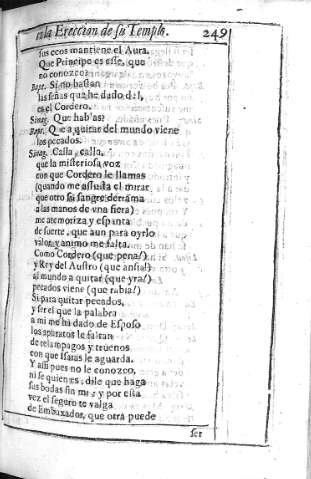 en la Ereccion de su Templo. 249
sus ecos mantiene el Aura.
Que Principe es esse, que
no conozco?
Bapt. Si no bastan
las señas que he dado del,
es el Cordero.
Sinag. Que hablas?
Bapt. Que a quitar del mundo viene
los pecados.
Sinag. Calla, calla,
que la misteriosa voz
con que Cordero le llamas
(quando me assusta el mirar
que otro su sangre derrama
a las manos de vna fiera)
me atemoriza y espanta
de suerte, que aun para oyrlo
valor y animo me falta.
Como Cordero (que pena!)
y Rey del Austro (que ansia!)
al mundo a quitar (que yra!)
pecados viene (que rabia!)
Si para quitar pecados,
y ser el que la palabra
a mi me ha dado de Esposo
los aparatos le faltan
de relampagos y truenos
con que Isaias le aguarda.
Y assi pues no le conozco,
ni se quien es, dile que haga
sus bodas sin mi; y por esta
vez el seguro te valga
de Embaxador, que otra puede
ser